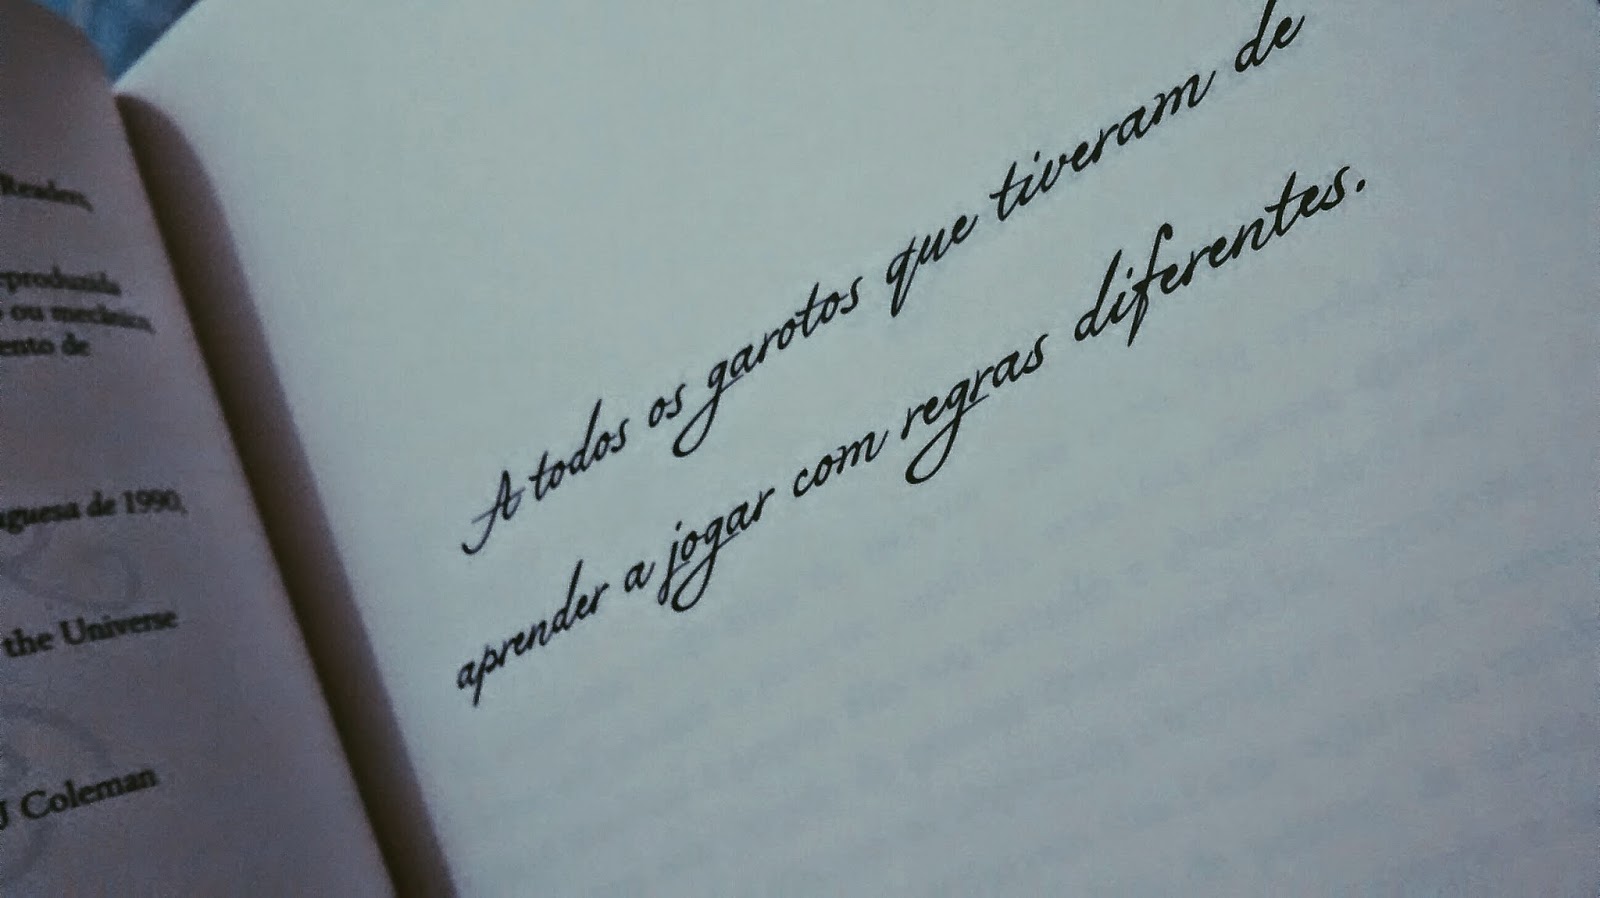 Readers,
eproduzida
ou mecânico,
ento de
uguesa de 1990,
the Universe
J Coleman
A todos os garotos que tiveram de
aprender a jogar com regras diferentes.